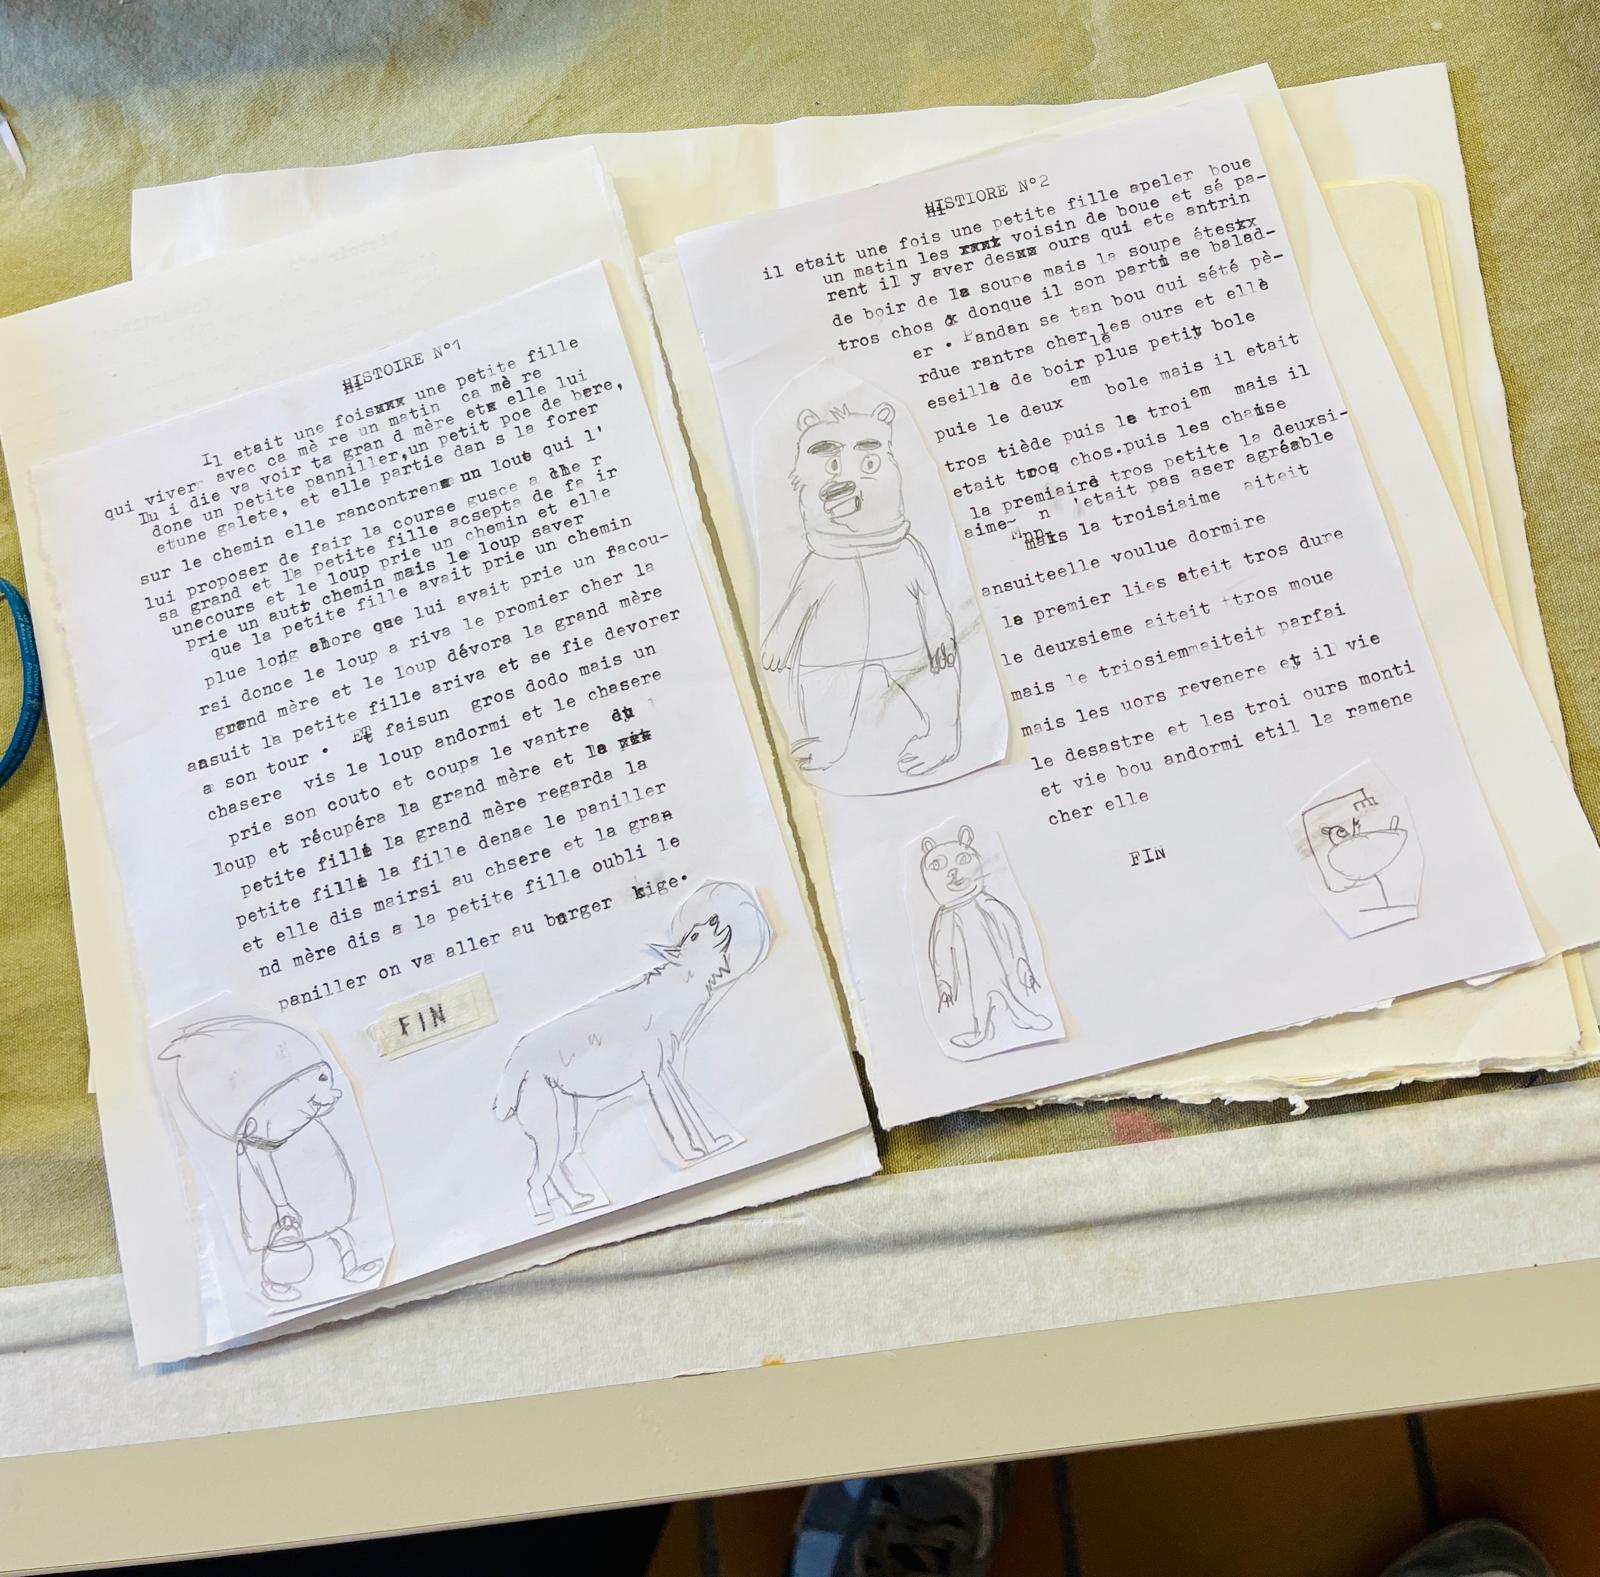 HISTOIRE N°1
Il etait une foisxxx une petite fille
qui viver avec ca mè re un matin ca mè re
lu i die va voir ta gran d mère etx elle lui
done un petite panniller,un petit poe de bere,
etune galete, et elle partie dan s la forer
sur le chemin elle rancontrene un lout qui l'
lui proposer de fair la course gusce a che r
sa grand et la petite fille acsepta de fa ir
unecours et le loup prie un chemin et elle
prie un autr chemin mais le loup saver
que la petite fille avait prie un chemin
plue long ahore que lui avait prie un racou-
rsi donce le loup a riva le promier cher la
grand mère et le loup dévora la grand mère
ansuit la petite fille ariva et se fie devorer
a son tour . ET faisun gros dodo mais un
chasere vis le loup andormi et le chasere
prie son couto et coupa le vantre du
loup et récupéra la grand mère et la xxx
petite fille la grand mère regarda la
petite fille la fille denae le paniller
et elle dis mairsi au chsere et la gran
nd mère dis a la petite fille oubli le
paniller on va aller au burger kige.
FIN
HISTIORE N°2
il etait une fois une petite fille apeler boue
un matin les xxxx voisin de boue et sé pa-
rent il y aver desxx ours qui ete antrin
de boir de la soupe mais la soupe étesxx
tros chos & donque il son parti se balad-
er . Pandan se tan bou qui sété pè-
rdue rantra cher les ours et elle
eseille de boir le plus petit bole
puie le deux em bole mais il etait
tros tiède puis le troi em mais il
etait tros chos.puis les chaise
la premiairè tros petite la deuxsi-
aime~ n 'etait pas aser agréable
mais la troisiaime aiteit
ansuiteelle voulue dormire
le premier lies ateit tros dure
le deuxsieme aiteit tros moue
mais le triosiemmaiteit parfai
mais les uors revenere et il vie
le desastre et les troi ours monti
et vie bou andormi etil la ramene
cher elle
FIN